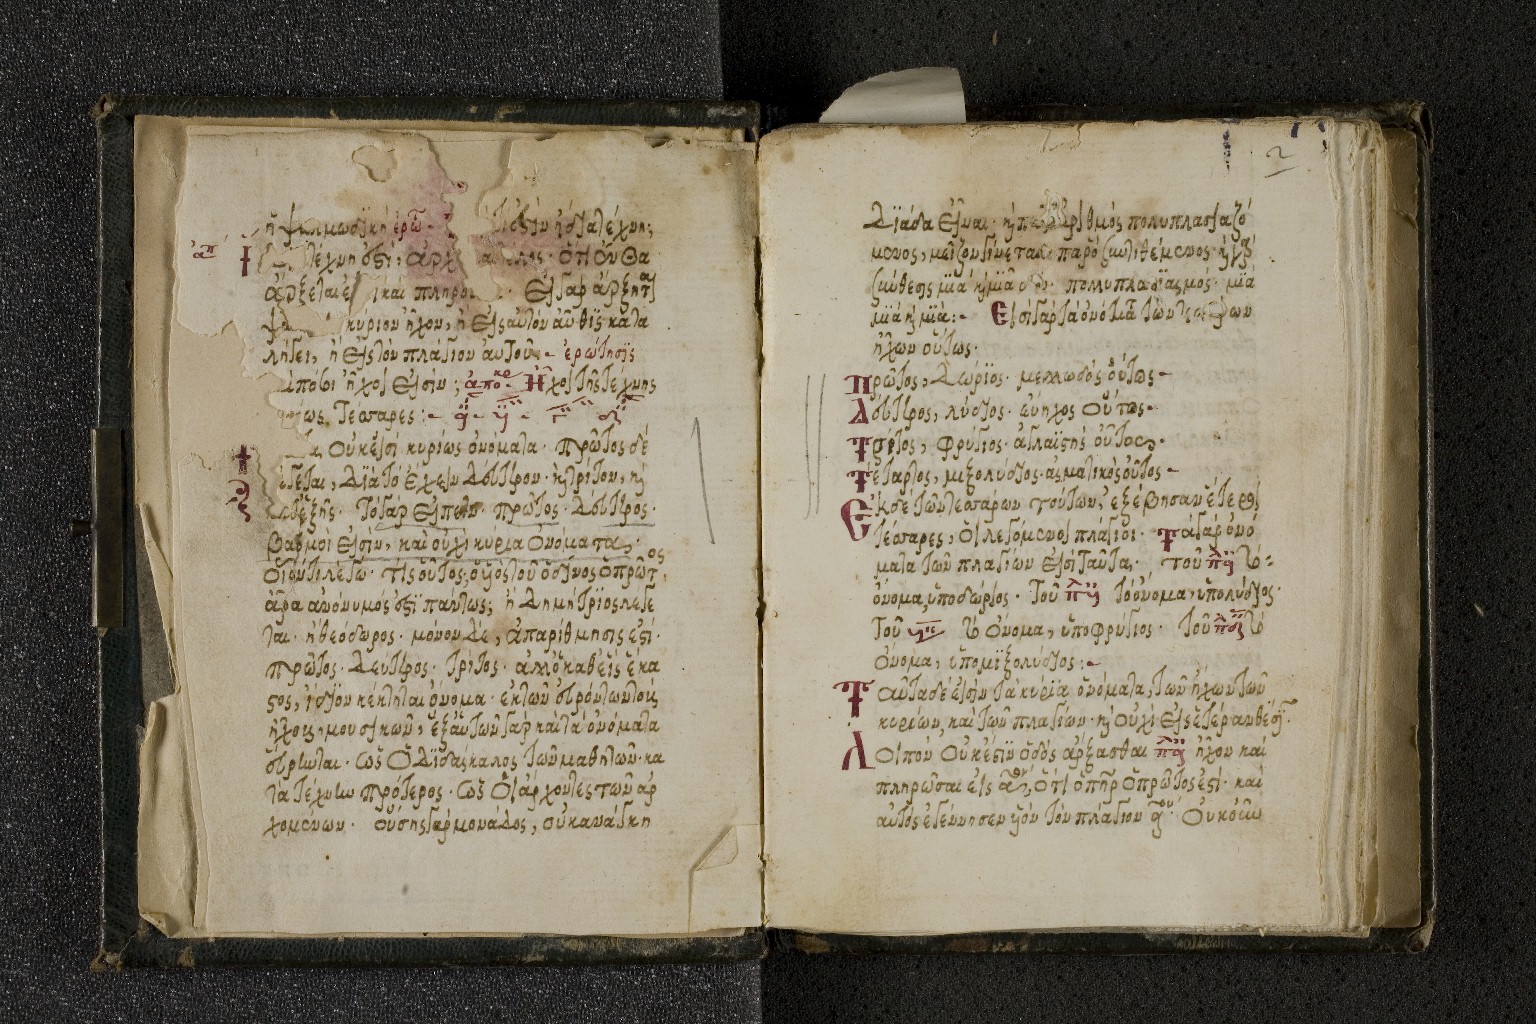 ἢ ψαλμωδικὴ ἐρω ἐστὶν ἡ δὲ τέχνη;
ἀπ
τέχνη ἐστὶ, ἀρχὴ τέλος. ὅπου θα
ἄρξεται ἐ καὶ πληρο. Εἰ γὰρ ἄρξηται
κύριον ἦχον, ἢ εἰς αὐτὸν αὖθις κατα
λήγει, ἢ εἰς τὸν πλάγιον αὐτοῦ. ἐρώτησις
πόσοι ἦχοι εἰσίν; ἀποκρ Ἦχοι τῆς τέχνης
κυρίως τέσσαρες:
οὐκ εἰσὶ κυρίως ὀνόματα. πρῶτος δὲ
λέγεται, διὰ τὸ ἔχειν δεύτερον. ἢ τρίτον, καὶ
καθεξῆς. τὸ γὰρ εἰπεῖν πρῶτος. δεύτερος.
βαθμοί εἰσιν, καὶ οὐχὶ κύρια ὀνόματα,
οἱονεὶ λέγω. τίς οὗτος; ὁ υἱὸς τοῦ δεῖνος ὁ πρῶτος,
ἄρα ἀνώνυμός ἐστι πάντως; ἢ Δημήτριος λέγε
ται. ἢ θεόδωρος. μόνον δὲ, ἀπαρίθμησις ἐστί.
πρῶτος. δεύτερος. τρίτος. ἀλλ' ὁ καθεὶς ἕκα
στος, ἴδιον κέκτηται ὄνομα. ἐκ τῶν εὑρόντων τοὺς
ἤχους μουσικῶν, ἐξ αὐτῶν γὰρ καὶ τὰ ὀνόματα
εὕρηνται. ὡς ὁ διδάσκαλος τῶν μαθητῶν. κα
τὰ τέχνην πρότερος. ὡς οἱ ἄρχοντες τῶν ἀρ
χομένων. οὔσης γὰρ μονάδος, οὐκ ἀνάγκη
2
δϊάδα εἶναι. ἡ ἀριθμὸς πολυπλασιαζό
μενος, μείζων γίνεται παρὸ συντιθέμενος. ἡ γὰρ
σύνθεσις μία καὶ μία δύο. πολυπλασιασμὸς. μία
μία ἡ μία:- Εἰσὶ γὰρ τὰ ὀνόματα τῶν τεσσάρων
ἤχων οὕτως.
Πρῶτος, δώριος. μελωδὸς οὗτος
Δεύτερος, λύδιος. εὔηχος οὗτος
Τρίτος, φρύγιος. ἀγλαϊστὴς οὗτος.
Τέταρτος, μιξολύδιος. ἀσματικὸς οὗτος
Ἐκ δὲ τῶν τεσσάρων τούτων, ἐξέβησαν ἕτεροι
τέσσαρες, οἱ λεγόμενοι πλάγιοι. Τὰ γὰρ ὀνό
ματα τῶν πλαγίων εἰσὶ ταῦτα. τοῦ πλ α τὸ
ὄνομα, ὑποδώριος. τοῦ πλ β τὸ ὄνομα, ὑπολύδιος.
τοῦ τὸ ὄνομα, ὑποφρύγιος. τοῦ πλ δ τὸ
ὄνομα, ὑπομιξολύδιος:
Ταῦτα δέ εἰσιν τὰ κύρια ὀνόματα, τῶν ἤχων τῶν
κυρίων, καὶ τῶν πλαγίων. καὶ οὐχὶ εἰς ἑτέραν θέσιν.
Λοιπὸν οὐκ ἔστιν ὁδὸς ἄρξασθαι πλ α ἦχον καὶ
πληρῶσαι εἰς α, ὅτι ὁ πὴρ ὁ πρῶτος ἐστί. καὶ
αὐτὸς ἐγέννησεν υἱὸν τὸν πλάγιον α. Οὐκ ἔνι